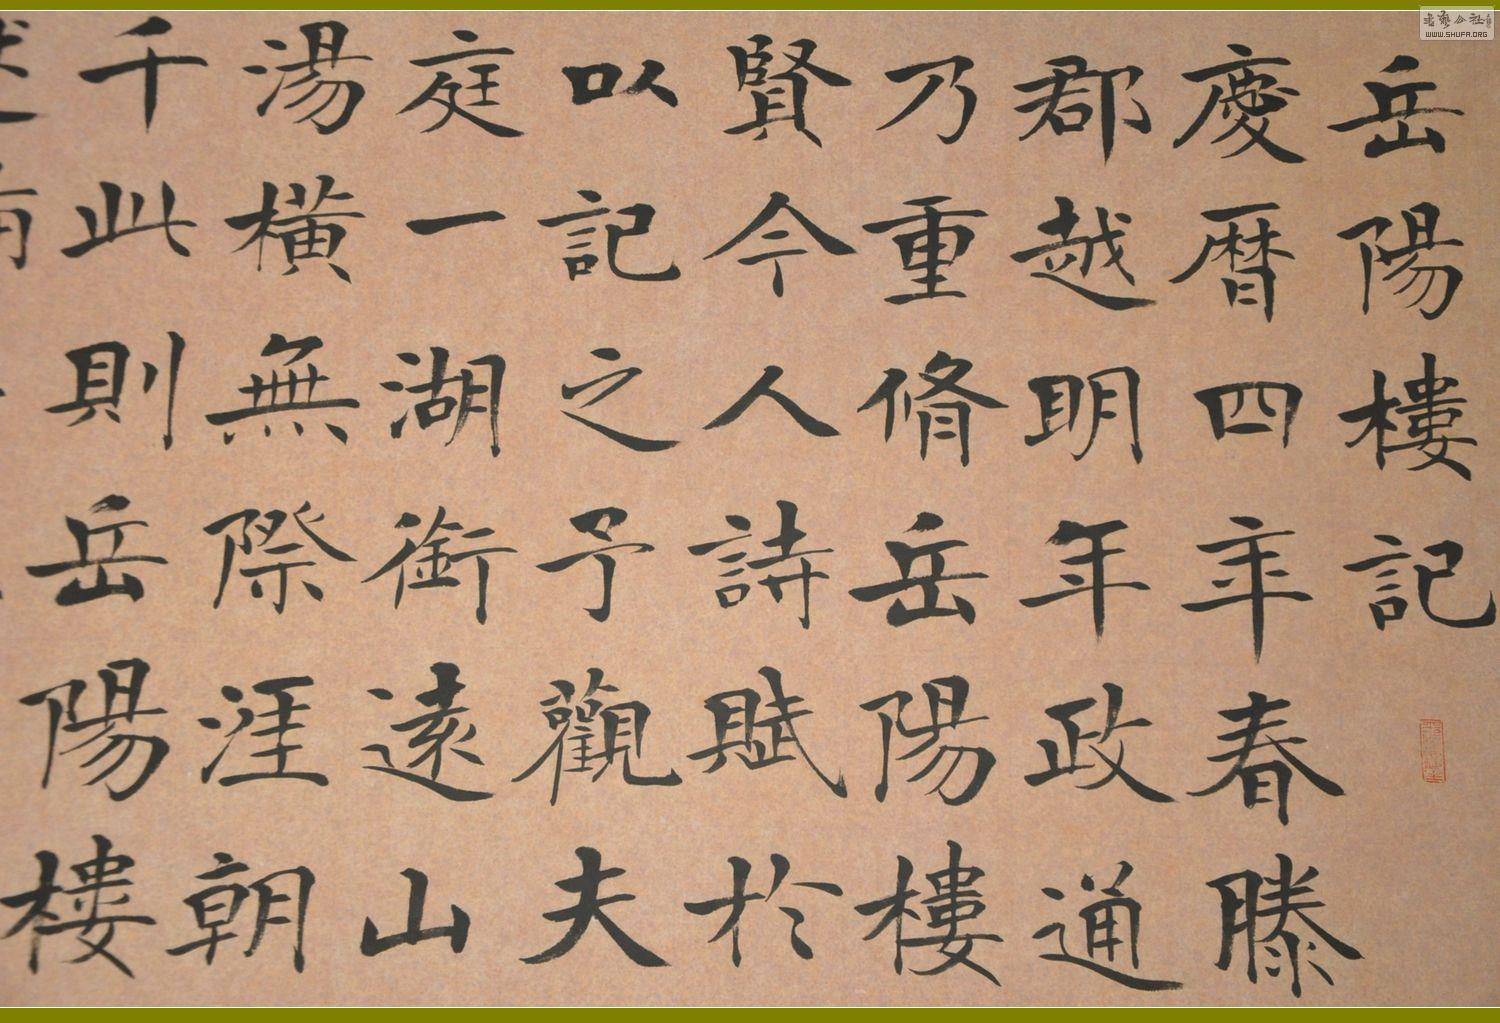 岳陽樓記
慶曆四年春滕
郡越明年政通
乃重脩岳陽樓
賢今人詩賦於
以記之予觀夫
庭一湖銜遠山
湯橫無際涯朝
千此則岳陽樓
WWW.SHUFA.ORG